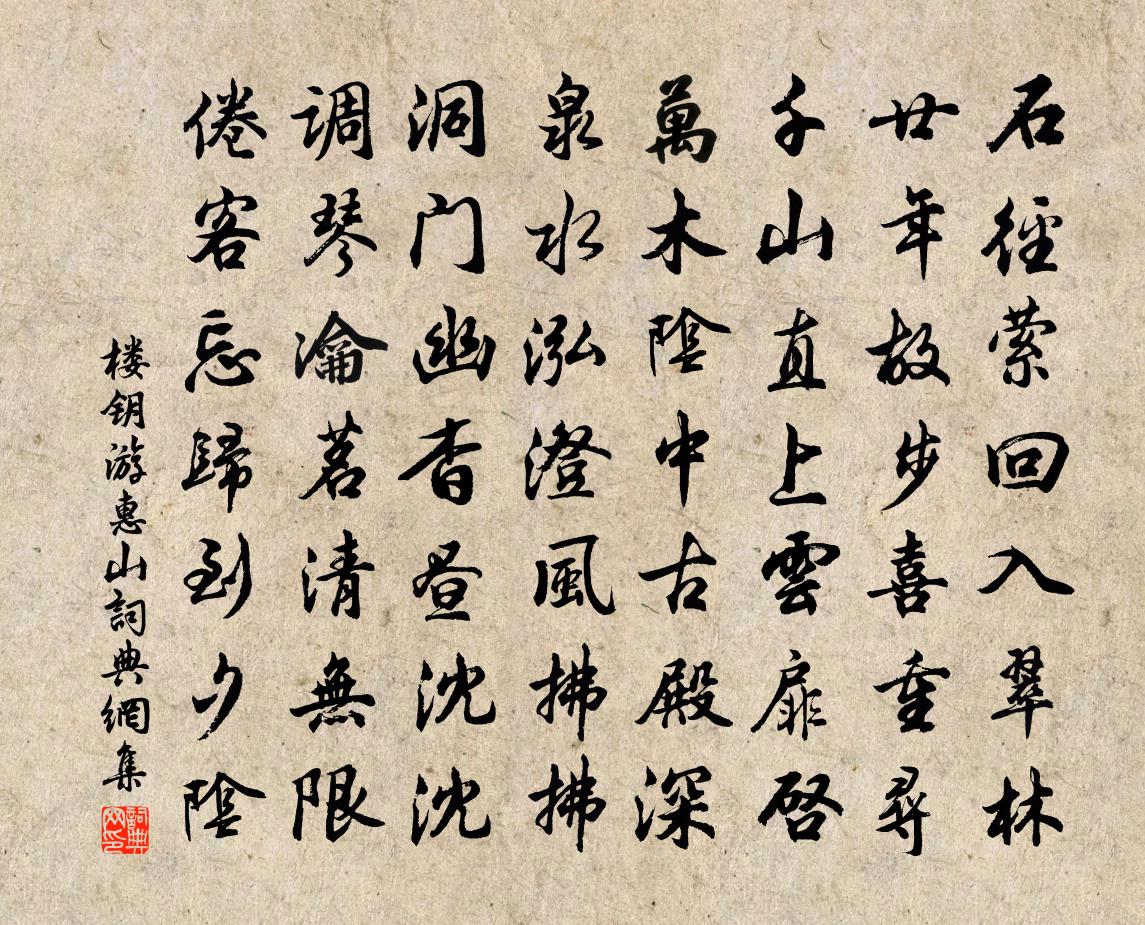 石徑萦回入翠林
廿年故步喜重尋
千山直上雲扉啓
萬木陰中古殿深
泉水泓澄風拂拂
洞門幽杳昼沈沈
调琴瀹茗清無限
倦客忘歸到夕陰
楼钥游惠山詞典網集
詞典网印